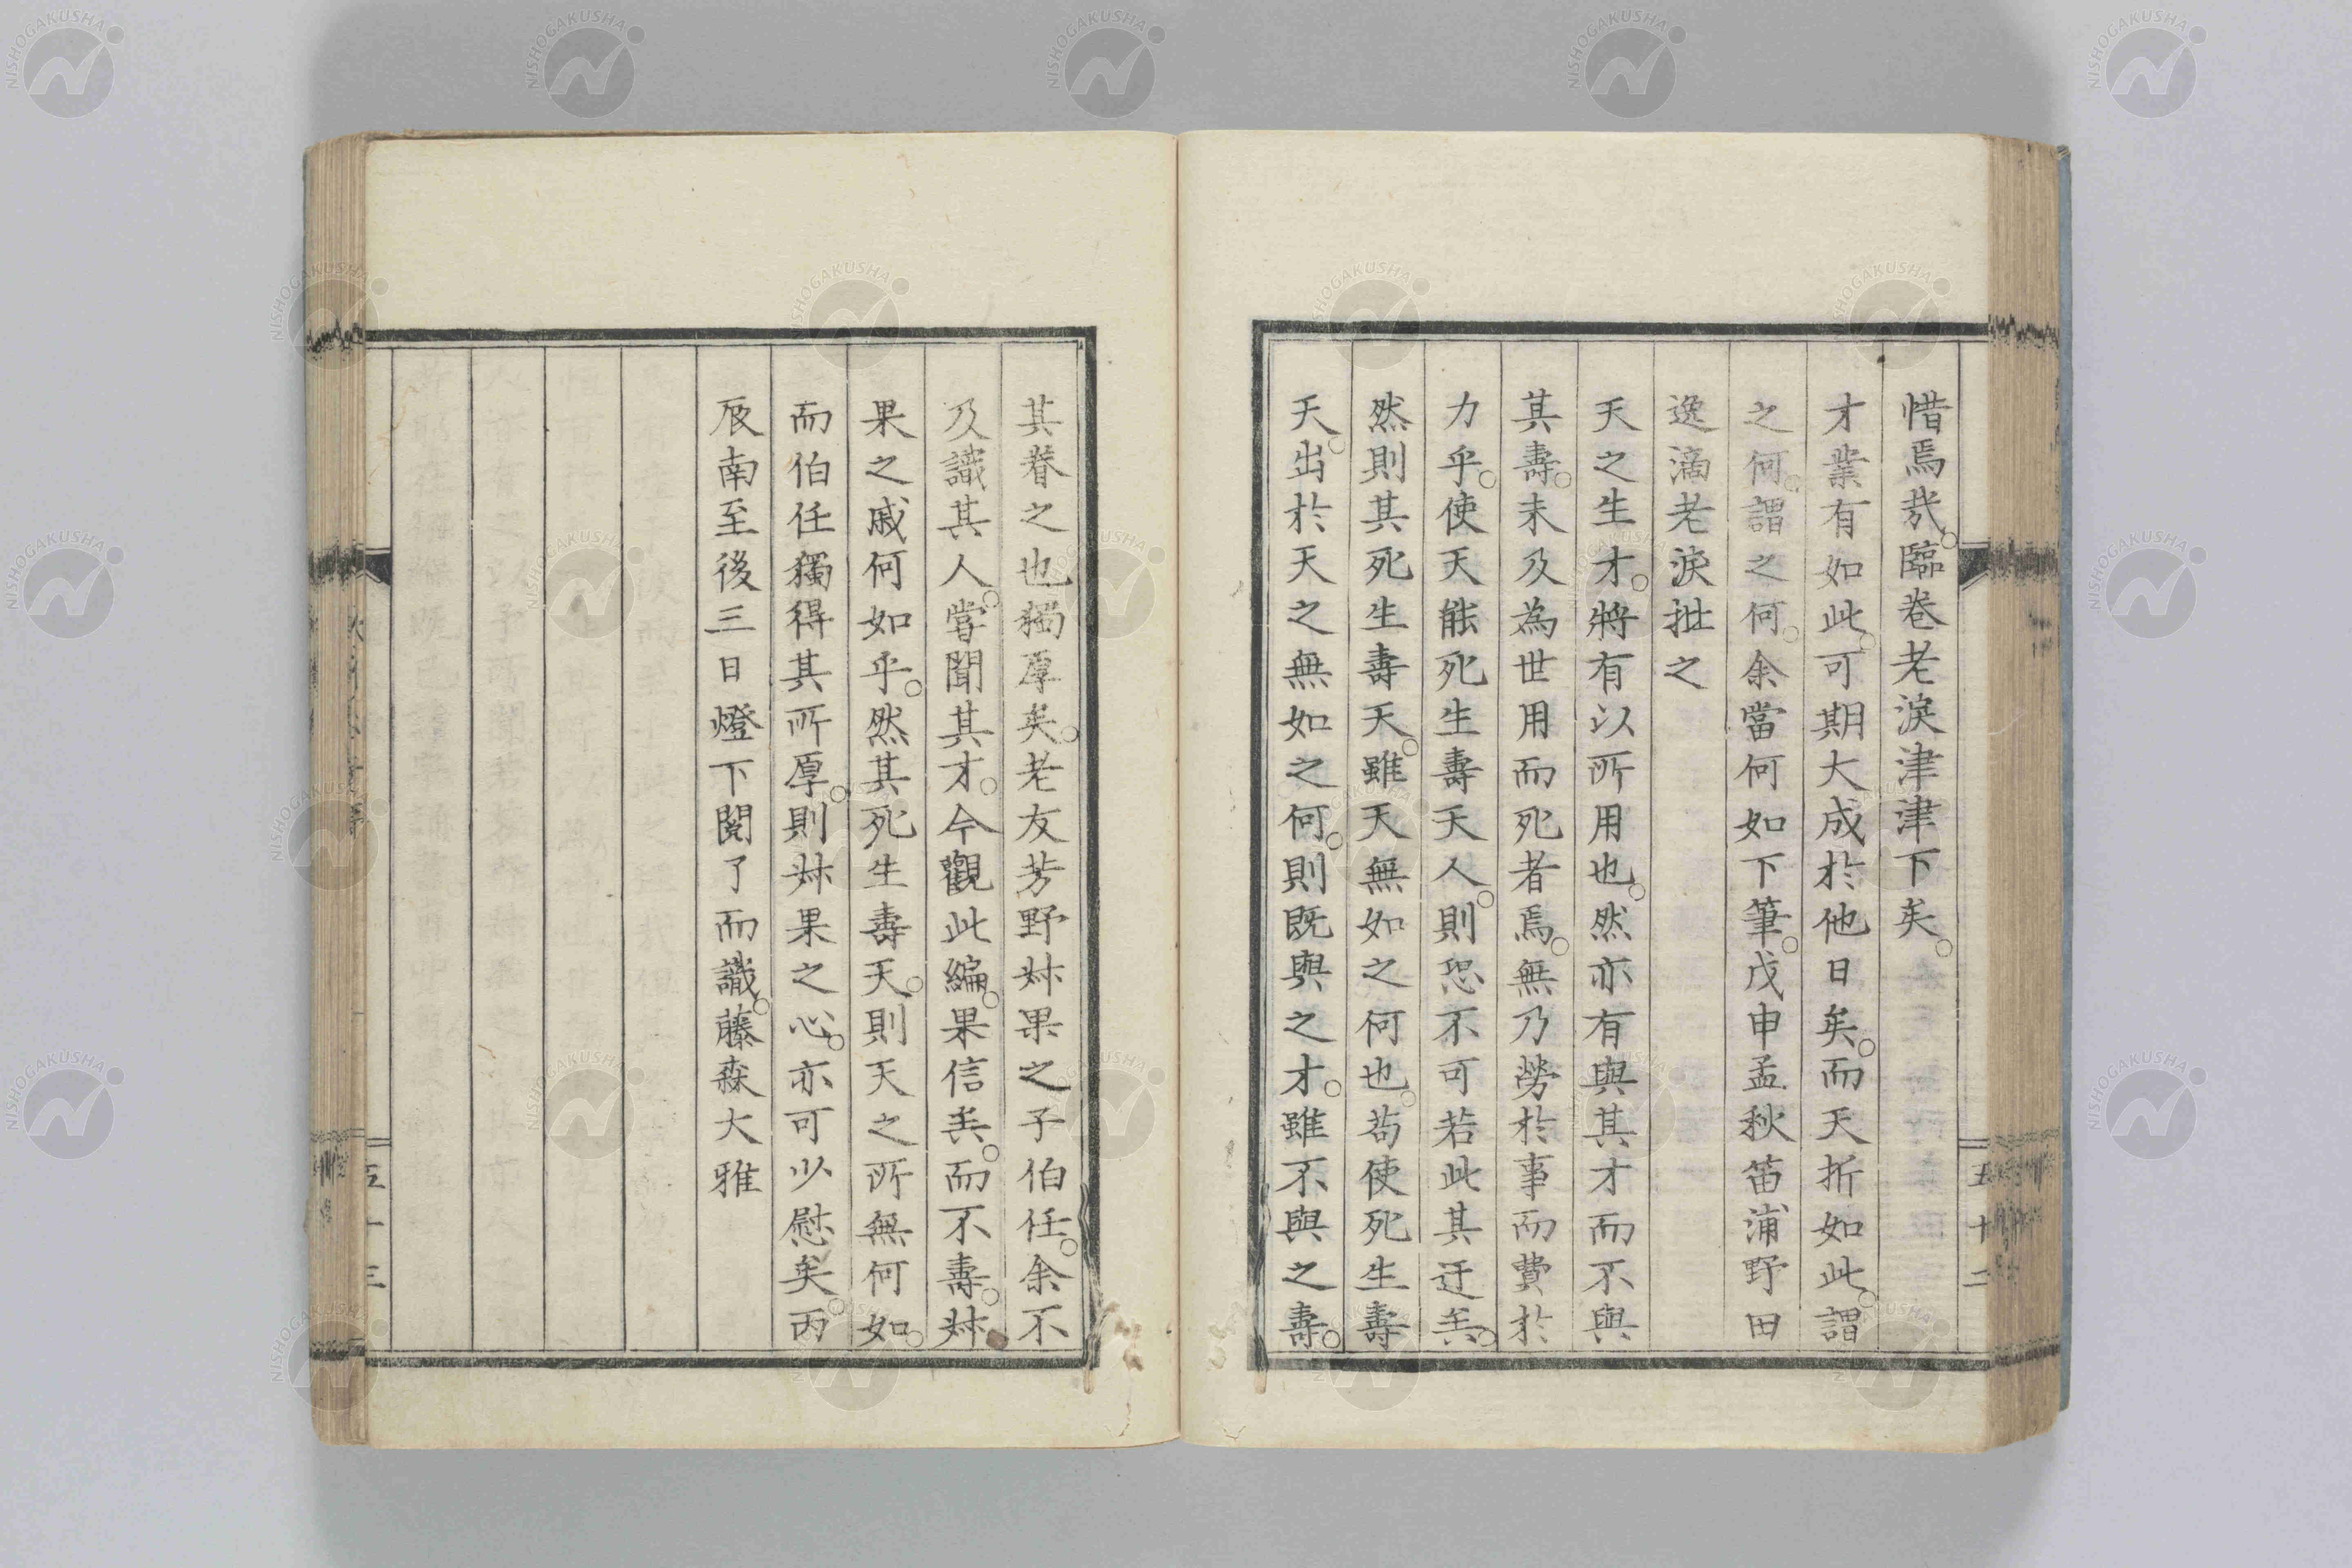 惜焉哉。臨巻老淚津津下矣。
才業有如此。可期大成於他日矣。而天折如此。謂
之何。謂之何。余當何如下筆。戊申孟秋笛浦野田
逸滴老淚批之
天之生才。將有以所用也。然亦有與其才而不與
其壽。未及為世用而死者焉。無乃勞於事而費於
力乎。使天能死生壽天人。則恐不可若此其迂矣。
然則其死生壽天。雖天無如之何也。苟使死生壽
天。出於天之無如之何。則既與之才。雖不與之壽。
五十二
其眷之也獨厚矣。老友芳野叔果之子伯任。余不
及識其人。嘗聞其才。今觀此編。果信矣。而不壽。叔
果之戚何如乎。然其死生壽天。則天之所無何如。
而伯任獨得其所厚。則叔果之心。亦可少慰矣。丙
辰南至後三日燈下閱了而識。藤森大雅
五十三
NISHOGAKUSHA